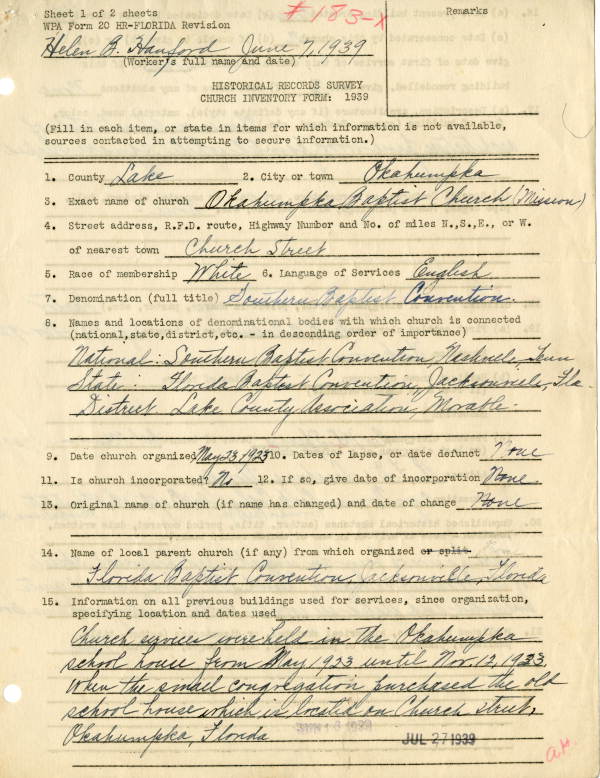 Sheet 1 of 2 sheets
#183-X
Remarks
WPA Form 20 HR-FLORIDA Revision
Helen B. Hanford June 7, 1939
(Worker's full name and date)
HISTORICAL RECORDS SURVEY
CHURCH INVENTORY FORM: 1939
(Fill in each item, or state in items for which information is not available,
sources contacted in attempting to secure information.)
1. County Lake 2. City or town Okahumpka
3. Exact name of church Okahumpka Baptist Church (Mission)
4. Street address, R.F.D. route, Highway Number and No. of miles N.,S.,E., or W.
of nearest town Church Street
5. Race of membership White 6. Language of Services English
7. Denomination (full title) Southern Baptist Convention.
8. Names and locations of denominational bodies with which church is connected
(national,state,district,etc. - in descending order of importance)
National: Southern Baptist Convention, Nashville, Tenn
State: Florida Baptist Convention, Jacksonville, Fla.
District Lake County Association, Movable.
9. Date church organized May 23, 1923 10. Dates of lapse, or date defunct None
11. Is church incorporated? No 12. If so, give date of incorporation None.
13. Original name of church (if name has changed) and date of change None
14. Name of local parent church (if any) from which organized or split
Florida Baptist Convention, Jacksonville, Florida
15. Information on all previous buildings used for services, since organization,
specifying location and dates used
Church services were held in the Okahumpka
school house from May 1923 until Nov. 12, 1933.
When the small congregation purchased the old
school house which is located on Church street,
Okahumpka, Florida
JUL 27 1939